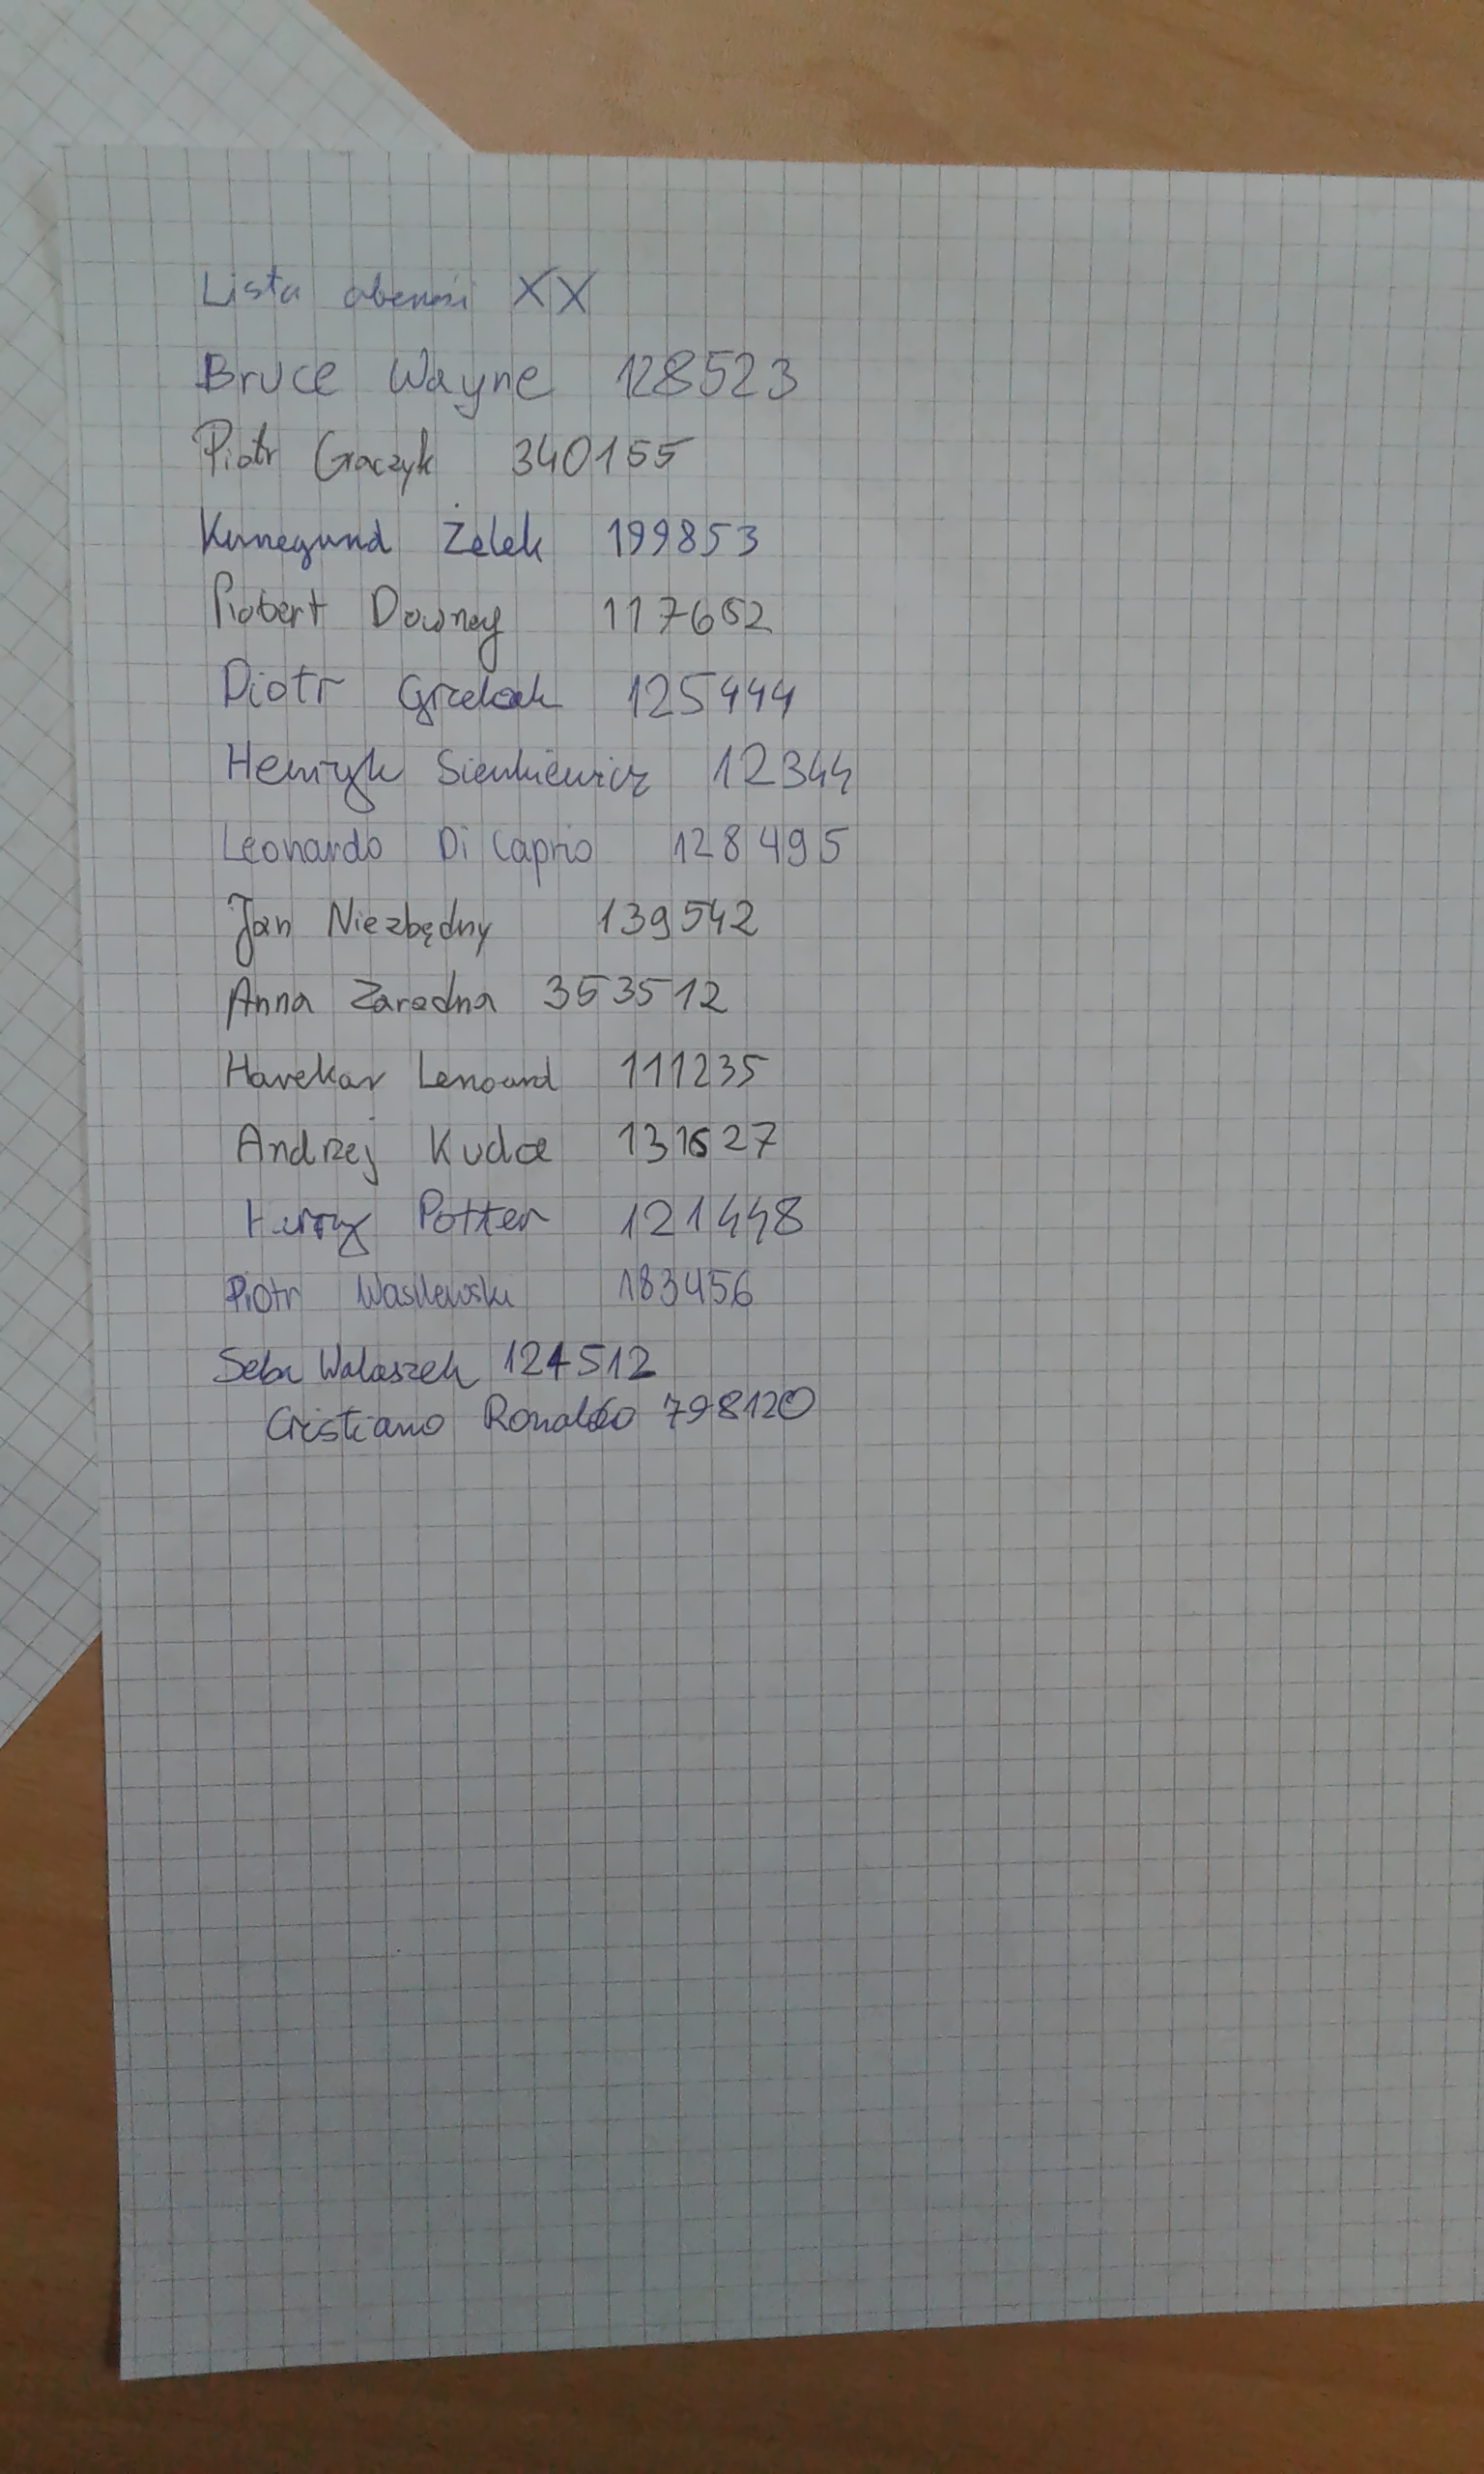 Lista obecności XX
Bruce Wayne 128523
Piotr Graczyk 340155
Kunegund Żelek 199853
Robert Downey 117652
Piotr Grzelak 125444
Henryk Sienkiewicz 12344
Leonardo Di Caprio 128495
Jan Niezbędny 139542
Anna Zaradna 353512
Harekar Lenoard 111235
Andrzej Kudra 131627
Harry Potter 121448
Piotr Wasilewski 183456
Seba Walaszek 124512
Cristiano Ronaldo 798120